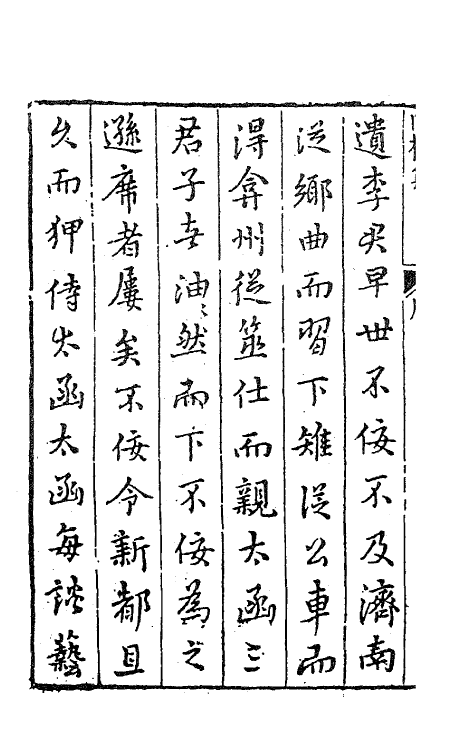 遺李君早世不佞不及濟南
從鄉曲而習下雉從公車而
得弇州從筮仕而親太函三
君子者油〻然而下不佞為之
遜席者屢矣不佞令新都且
久而狎侍太函太函每談藝